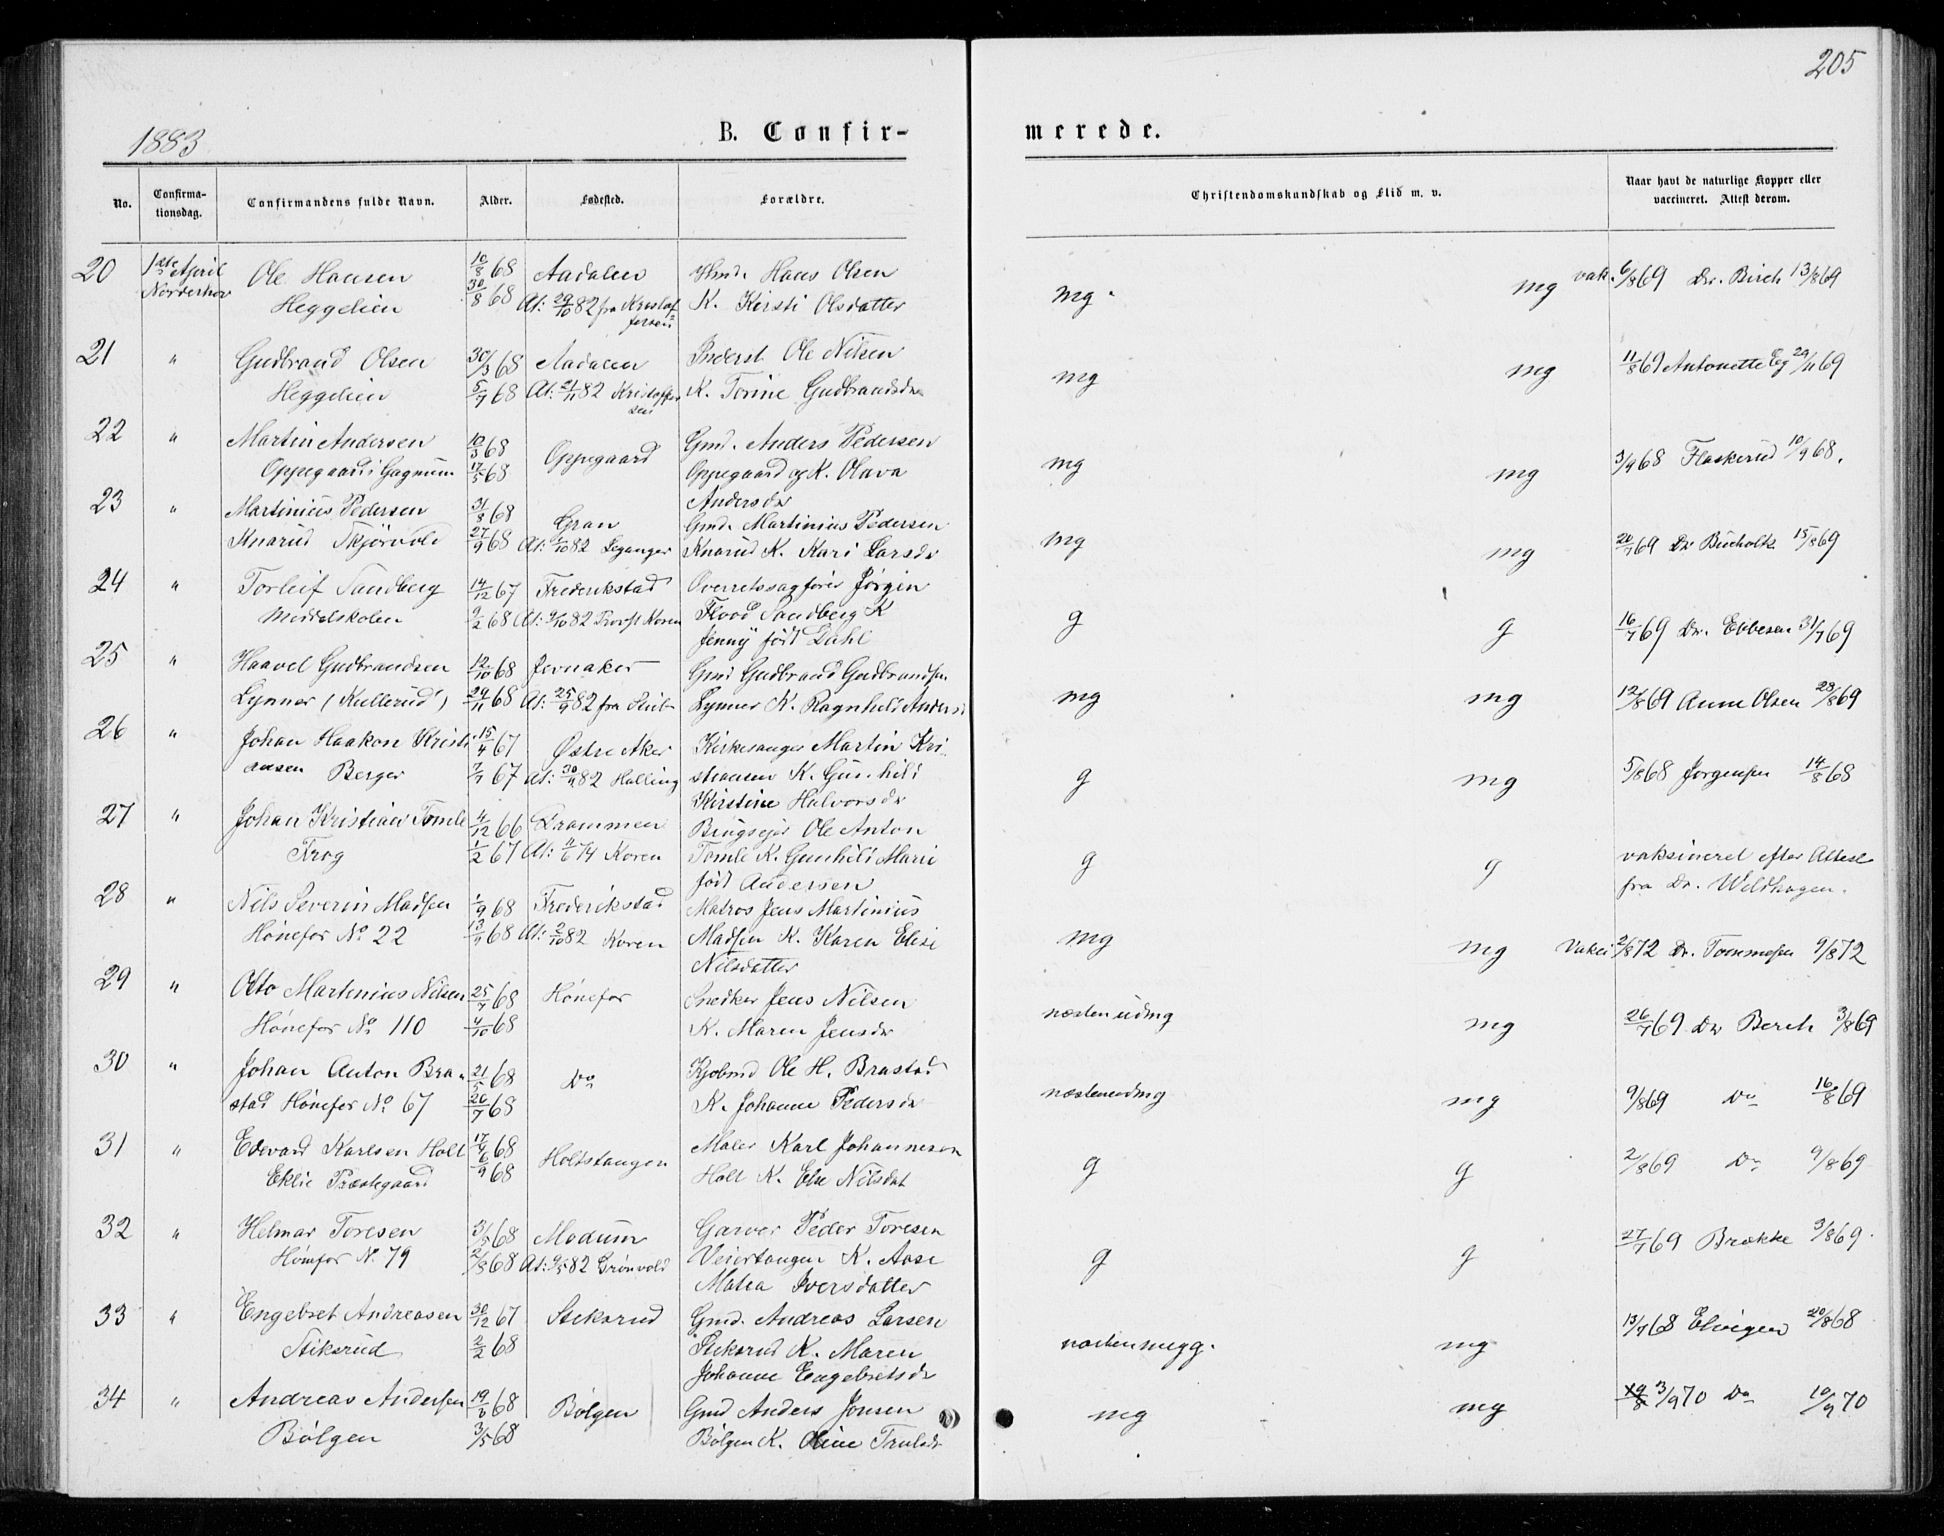 205
1883
B. Confir-
merede.
No.
Confirma-
tionsdag.
Confirmandens fulde Navn.
Alder.
Fødested.
Forældre.
Christendomskundskab og Flid m. v.
Naar havt de naturlige Kopper eller
vaccineret. Attest derom.
20 1ste April Ole Hansen 10/8 68 Aadalen Hans Olsen mg. mg vak. 6/8 69 Dr. Birch 13/8 69
Norderhov Heggelien 30/8 68 At: 29/10 82 fra Kristof K. Kirsti Olsdatter
fersen
21 " Gudbrand Olsen 30/3 68 Aadalen Inderst Ole Nilsen mg mg 11/8 69 Antonette Eg 29/11 69
Heggelien 5/7 68 At: 21/11 82 Kristoffer K. Torine Gudbrandsdr
sen
22 " Martin Andersen 10/3 68 Oppegaard Gmd. Anders Pedersen mg mg 3/9 68 Flaskerud 10/9 68.
Oppegaard i Gagnum 17/5 68 Oppegaard og K. Olava
Andersdr
23 " Martinius Pedersen 31/8 68 Gran Gmd. Martinius Pedersen mg mg 20/7 69 Dr Bucholtz 15/8 69
Knarud Tkjørvold 27/9 68 At: 7/10 82 Leganger Knarud K. Kari Larsdr
24 " Torleif Sandberg 14/12 67 Frederikstad Overretssagfører Jørgen g g 16/7 69 Dr. Ebbesen 31/7 69
Middelskolen 9/2 68 At: 9/10 82 Provst Koren Flood Sandberg K
Jenny født Dahl
25 " Haavel Gudbrandsen 12/10 68 Jevnaker Gmd Gudbrand Gudbrandsen mg mg 12/8 69 Anne Olsen 28/8 69
Lynner (Kullerud) 29/11 68 At: 25/9 82 fra Lynner K. Ragnhild Anders
26 " Johan Haakon Kristi 15/4 67 Østre Aker Kirkesanger Martin Kri g mg 5/8 68 Jørgensen 14/8 68
ansen Berger 7/7 67 At: 30/9 82 Halling stiansen K. Gunhild
Kirstine Halvorsdr
27 " Johan Kristian Tomle 4/12 66 Drammen Brugsejer Ole Anton g g vaksineret efter Attest
Trøg 1/2 67 At: 11/6 74 Koren Tomle K. Gunhild Marie fra Dr. Weldhagen.
født Andersen
28 " Nils Severin Madsen 1/9 68 Frederikstad Matros Jens Martinius mg mg 2/8 72 Dr. Tommesen 9/8 72
Hønefos No 22 13/9 68 At: 2/10 82 Koren Madsen K. Karen Elise
Nilsdatter
29 " Otto Martinius Nilsen 25/7 68 Hønefos Snedker Jens Nilsen næsten udmg mg 26/7 69 Dr Berch 3/8 69
Hønefos No 110 4/10 68 K. Maren Jensdr
30 " Johan Anton Bra- 21/5 68 Do Kjøbmd Ole H. Brastad næsten udmg mg 9/8 69 Do 16/8 69
stad Hønefos No 67 26/7 68 K. Johanne Pedersdr
31 " Edevard Karlsen Holt 17/4 68 Holtstangen Maler Karl Johannesen g g 2/8 69 Do 9/8 69
Eklie Præstegaard 6/9 68 Holt K. Else Nilsdat
32 " Helmar Toresen 3/5 68 Modum Garver Peder Toresen g g 27/7 69 Brække 3/8 69.
Hønefos No 79 2/8 68 At: 9/5 82 Grønvold Veiertangen K. Aase
Matea Iversdatter
33 " Engebret Andreasen 30/12 67 Stiksrud Gmd. Andreas Larsen næsten megg. mg 13/7 68 Elvigen 20/8 68
Stiksrud 2/2 68 Stiksrud K. Maren
Johanne Engebretsdr
34 " Andreas Andersen 19/3 68 Bølgen Gmd Anders Jonsen mg mg 3/9 70 Do 10/9 70
Bølgen 3/5 68 Bølgen K. Oline Trulsdr